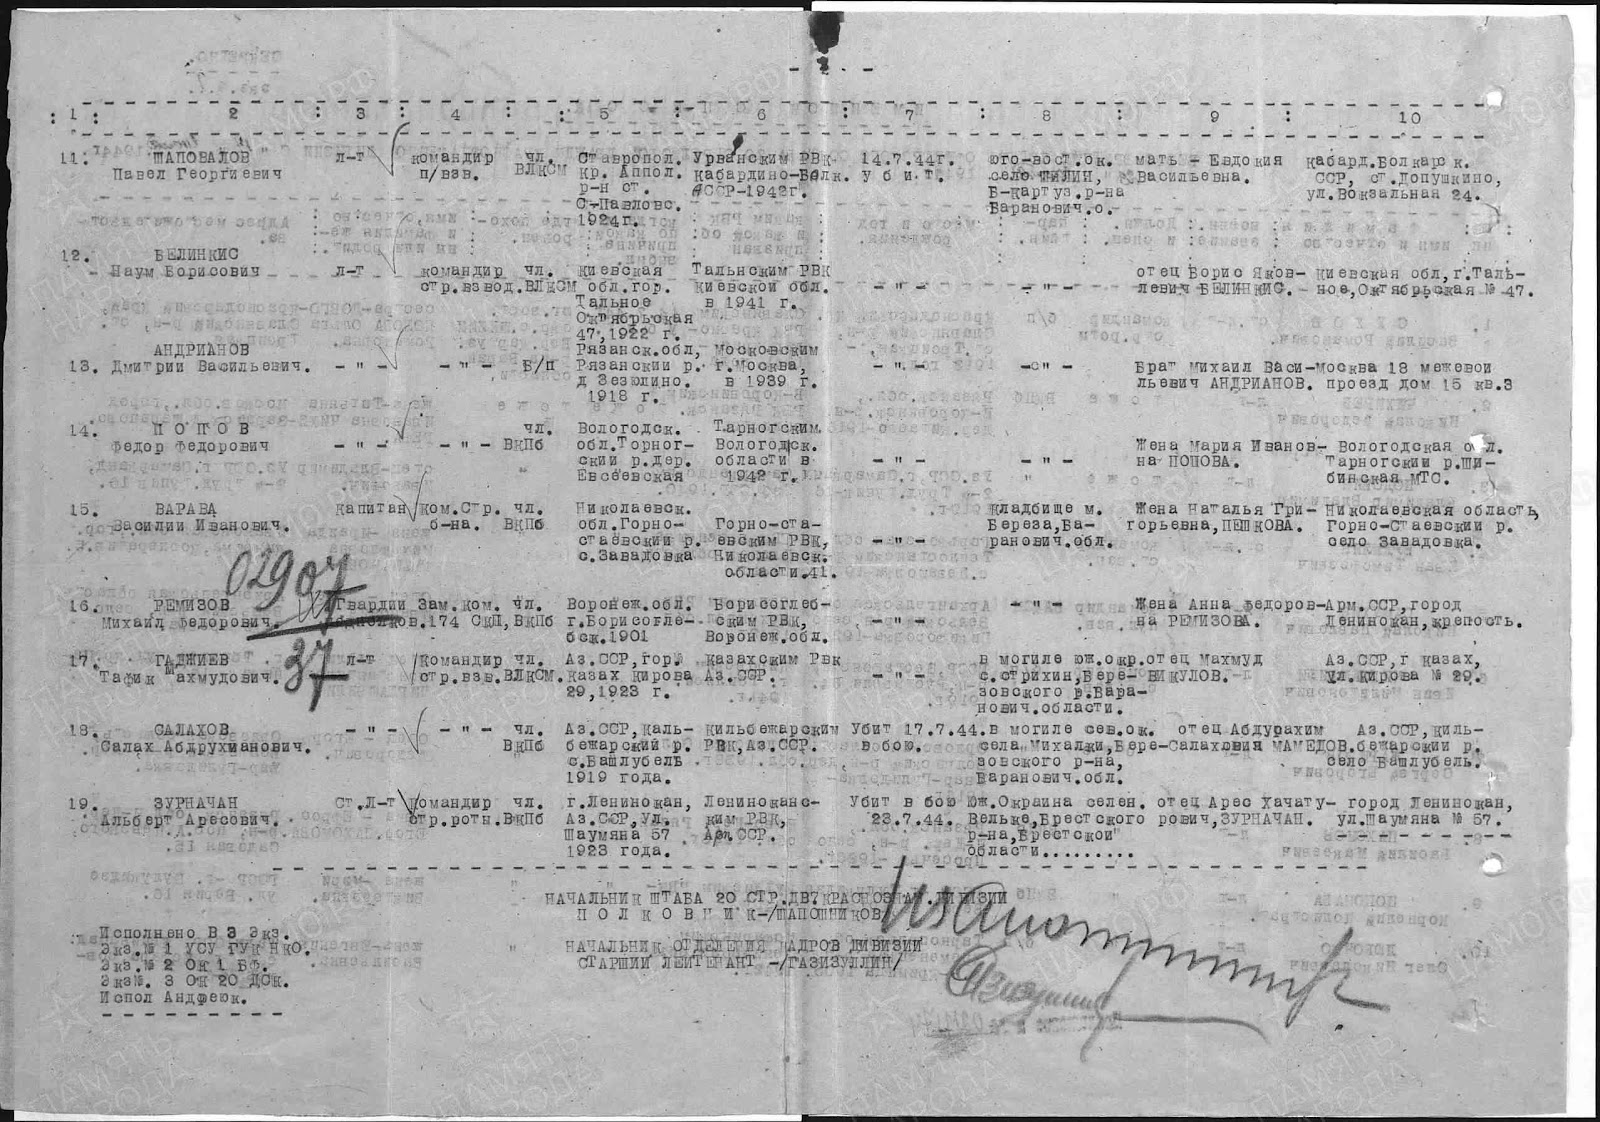 - 2 -
: 1 : 2 : 3 : 4 : 5 : 6 : 7 : 8 : 9 : 10
11. ШАПОВАЛОВ л-т командир чл. Ставропол. Урванским РВК 14.7.44г. юго-вост.ок. мать - Евдокия кабард.Болкарск.
Павел Георгиевич п/взв. ВЛКСМ кр. Аппол. Кабардино-Балк. у б и т. село ЖИЛИН, Васильевна. ССР, ст.Допушкино,
р-н ст. АССР-1942г. Б-Картуз.р-на ул.Вокзальная 24.
С-Павловс. Баранович.о.
1924г.
12. БЕЛИНКИС
Наум Борисович л-т командир чл. киевская Тальнским РВК отец Борис Яков- Киевская обл,г.Таль-
стр.взвод. ВЛКСМ обл.гор. Киевской обл. - " - - " - левич БЕЛИНКИС. ное,Октябрьская № 47.
Тальное в 1941 г.
Октябрьская
47,1922 г.
АНДРИАНОВ Рязанск.обл, Московским
13. Дмитрий Васильевич. - " - - " - Б/п Рязанский р. г.Москва, - " - - " - Брат Михаил Васи- Москва 18 межевой
д Зезюлино. в 1939 г. льевич АНДРИАНОВ. проезд дом 15 кв.3
1918 г.
14. П О П О В чл. Вологодск. Тарногским
Федор Федорович - " - - " - ВКПб обл.Торног- Вологодск. Жена Мария Иванов- Вологодская обл.
ский р.дер. области в - " - - " - на ПОПОВА. Тарногский р.Ши-
Евсеевская 1942 г. бинская МТС.
15. ВАРАВА капитан Ком.Стр. чл. Николаевск. кладбище м. Жена Наталья Гри- Николаевская область,
Василий Иванович. б-на. ВКПб обл.Горно- Горно-ста- Береза,Ба- горьевна,ПЕШКОВА. Горно-Стаевский р.
стаевский р. евским РВК, - " - ранович.обл. село Завадовка.
с.Завадовка Николаевск.
области.41.
02907
16. РЕМИЗОВ Гвардии Зам.ком. чл. Воронеж.обл. Борисоглеб- - " - Жена Анна Федоров- Арм.ССР,город
Михаил Федорович. 174 СКП, ВКПб г.Борисогле- ским РВК, - " - на РЕМИЗОВА. Ленинокан,крепость.
бск.1901 Воронеж.обл.
37
17. ГАДЖИЕВ л-т Командир чл. Аз.ССР,гор. казахским Рвк в могиле юж.окр. отец Махмуд Аз.ССР,г казах,
Тафик Шахмудович. стр.взв. ВЛКСМ. казах кирова Аз.ССР. - " - с.стрихин,Бере- ВИКУЛОВ. ул.Кирова № 29.
29,1923 г. зовского р.Бара-
нович.области.
18. САЛАХОВ - " - - " - чл. Аз.ССР,каль- Кильбежарским Убит 17.7.44. в могиле сев.ок. отец Абдурахим Аз.ССР,киль-
Салах Абдрухманович. ВКПб бежарский р. РВК,Аз.ССР. в бою. села.Михалки,Бере- Салахович МАМЕДОВ. бежарский р.
с.Башлубель зовского р-на, село Башлубель.
1919 года. Баранович.обл.
19. ЗУРНАЧАН Ст.Л-т командир чл. г.Ленинокан, Ленинокансс- Убит в бою Юж.Окраина селен. отец Арес Хачату- город Ленинокан,
Альберт Аресович. стр.роты. ВкПб Аз.ССР,ул. ким РВК, 23.7.44. Вельке,Брестского рович,ЗУРНАЧАН. ул.Шаумяна № 57.
Шаумяна 57 Арм.ССР. р-на,Брестской
1923 года. области.........
НАЧАЛЬНИК ШТАБА 20 СТР.ДВ.КРАСНОЗНАМ.ДИВИЗИИ
П О Л К О В Н И К -/ШАПОШНИКОВ/
Исполнено В 3 Экз.
Экз.№ 1 УСУ ГУК НКО.
Экз.№ 2 ОК 1 БФ.
Экз№. 3 ОК 20 ДСК.
Испол Андреюк.
НАЧАЛЬНИК ОТДЕЛЕНИЯ КАДРОВ ДИВИЗИИ
СТАРШИЙ ЛЕЙТЕНАНТ -/ГАЗИЗУЛЛИН/